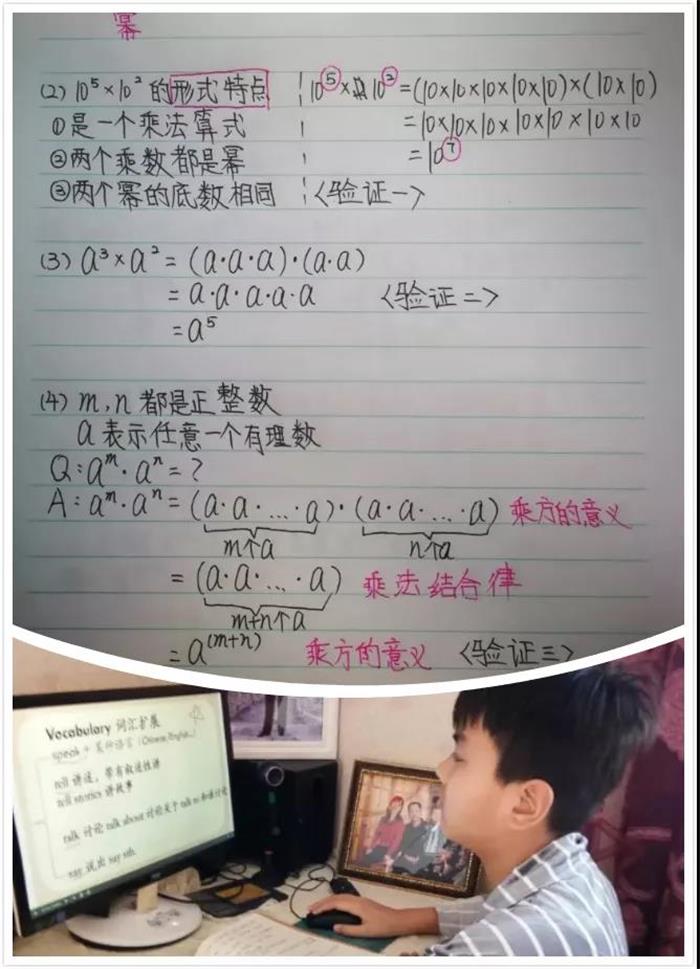 幂
(2) 10⁵×10²的形式特点
①是一个乘法算式
②两个乘数都是幂
③两个幂的底数相同
10⁵×10²=(10×10×10×10×10)×(10×10)
=10×10×10×10×10×10×10
=10⁷
<验证一>
(3) a³×a²=(a·a·a)·(a·a)
=a·a·a·a·a <验证二>
=a⁵
(4) m,n都是正整数
a表示任意一个有理数
Q:aᵐ·aⁿ=?
A:aᵐ·aⁿ=(a·a·...·a)·(a·a·...·a) 乘方的意义
m个a n个a
=(a·a·...·a) 乘法结合律
m+n个a
=a⁽ᵐ⁺ⁿ⁾ 乘方的意义 <验证三>
Vocabulary 词汇扩展
speak + 某种语言 (Chinese/English...)
tell 讲述，带有叙述性讲
tell stories 讲故事
talk 讨论 talk about 讨论关于 talk to 和谁讨论
say 说出 say sth.